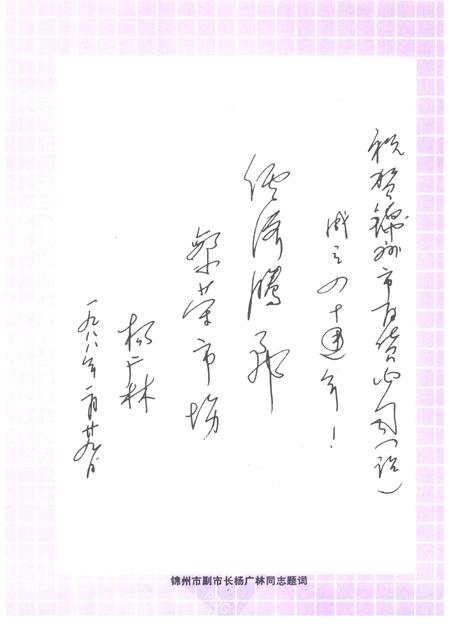 祝贺锦州市百货公司(站)
成立四十週年!
经济腾飛
繁荣市场
杨广林
一九八八年二月廿九日
锦州市副市长杨广林同志题词